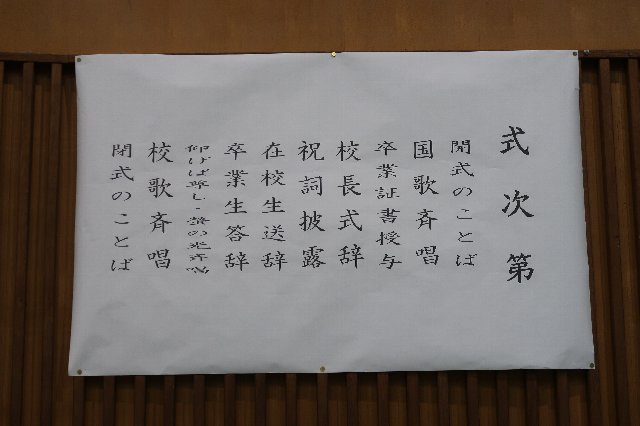 式次第
開式のことば
国歌斉唱
卒業証書授与
校長式辞
祝詞披露
在校生送辞
卒業生答辞
仰げば尊し・蛍の光斉唱
校歌斉唱
閉式のことば